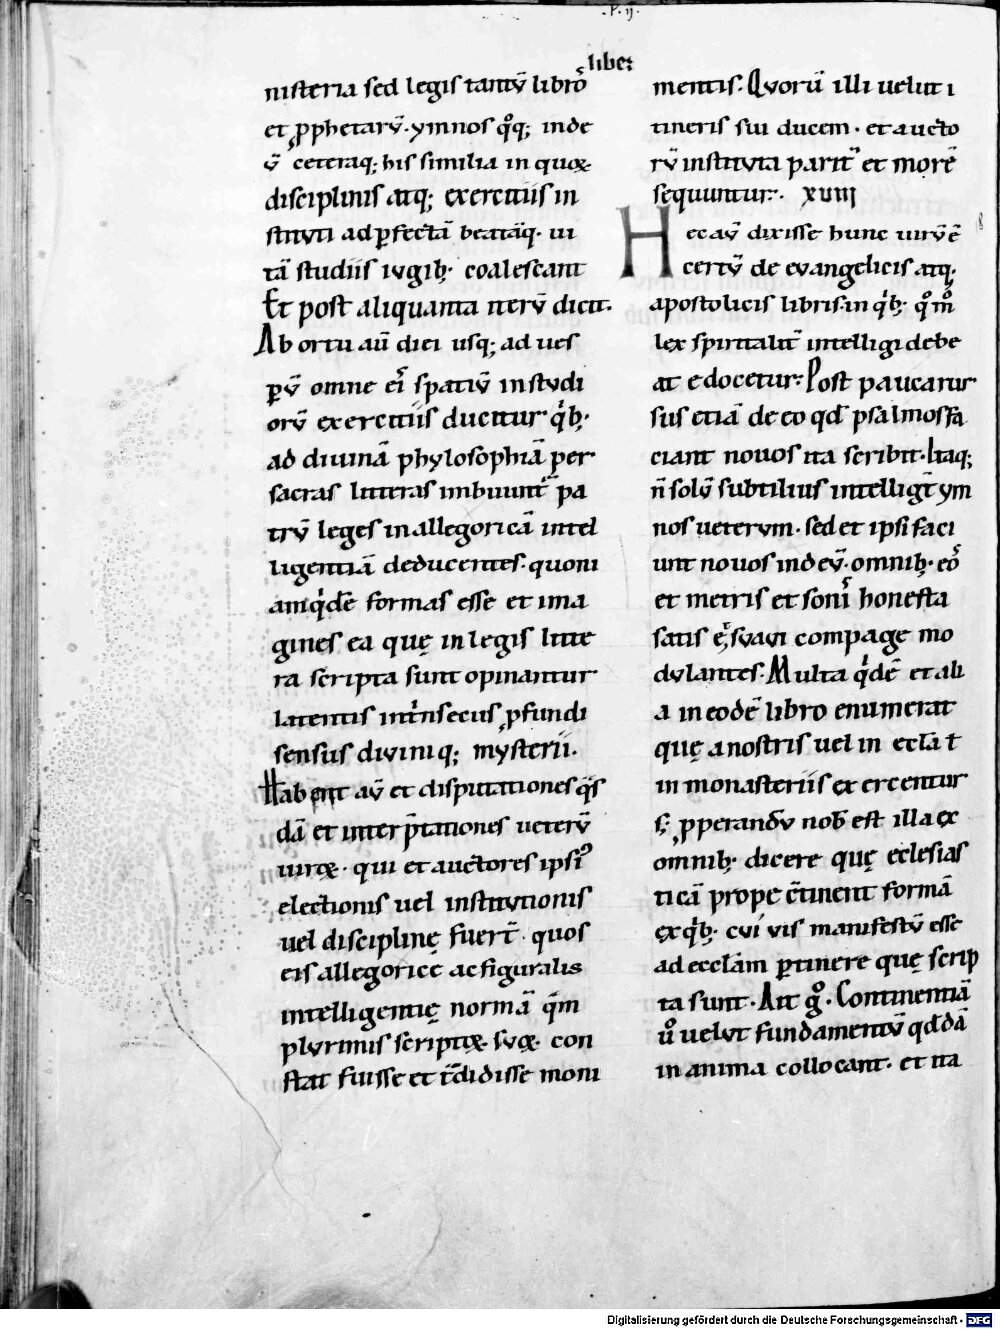 .P. ij.
liber
nisteria sed legis tantū libros̄
et ꝓphetarū. ymnos qͦq; in de
ū ceteraq; his similia in quoꝝ
disciplinis atq; exercitiis in
stituti ad ꝑfectā beatāq. ui
tā studiis iugib; coalescant
Et post aliquanta iterū dicit.
Ab ortu aū diei usq; ad ues
ꝑū omne ei᷒ spatiū in studi
orū exercitiis ducitur qͥb;
ad diuinā phylosophiā per
sacras litteras imbuunt᷒ pa
trū leges in allegoricā intel
ligentiā deducentes. quoni
am qͥdē formas esse et ima
gines ea quę in legis litte
ra scripta sunt opinantur
latentis intͥnsecus ꝓfundi
sensus diuiniq; mysterii.
Habent aū et disputationes qͣs
dā et interp̄tationes ueterū
uiroꝝ. qui et auctores ipsi᷒
electionis uel institutionis
uel disciplinę fuer̄t. quos
eis allegoricę ac figuralis
intelligentię normā qͣm
plurimis scriptiꝭ suꝭ. con
stat fuisse et t̄didisse moni
mentis. Quorū illi uelut i
tineris sui ducem. et aucto
rū instituta parit᷒ et morē
sequuntur. xviij
Hec aū dixisse hunc uirū ē
certū de euangelicis atq.
apostolicis libris. in qͥb; qͦmͦ
lex spiritalit᷒ intelligi debe
at edocetur. Post pauca rur
sus etiā de eo qd̄ psalmos fa
ciant nouos ita scribit. Itaq;
n̄ solū subtilius intelligt̄ ym
nos ueterum. sed et ipsi faci
unt nouos in deū. omnib; eos̄
et metris et soni᷒ honesta
satis et᷒ suaui compage mo
dulantes. Multa qͥdē et ali
a in eodē libro enumerat
quę a nostris uel in ecłā ł
in monasteriis exercentur
s; ꝓperandū nob̄ est illa ex
omnib; dicere quę eclesias
ticā prope c̄tinent formā
ex qͥb; cui uis manifestū esse
ad ecclām ꝑtinere quę scrip
ta sunt. Ait gͦ. Continentiā
uͦ uelut fundamentū qd̄dā
in anima collocant. et ita
Digitalisierung gefördert durch die Deutsche Forschungsgemeinschaft - DFG